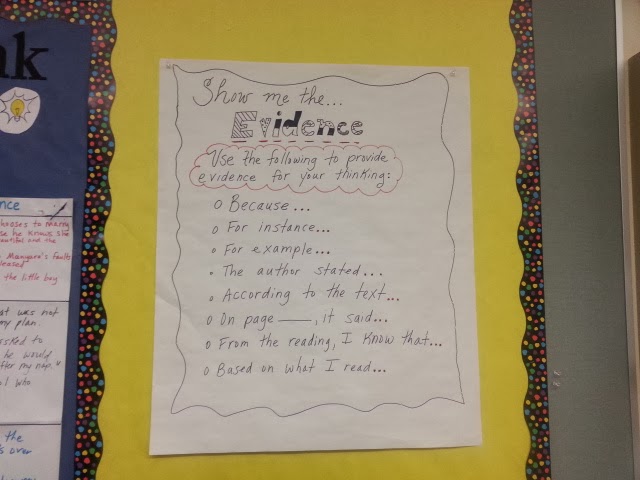 nk
nce
phrases to marry
se he knows she
beautiful and the
Manyara's faults
pleased
the little boy
at was not
my plan.
asked to
he would
after my nap."
ol who
the
s over
Show me the...
Evidence
Use the following to provide
evidence for your thinking:
o Because...
o For instance...
o For example...
• The author stated...
• According to the text...
o On page ____, it said...
o From the reading, I know that...
o Based on what I read...